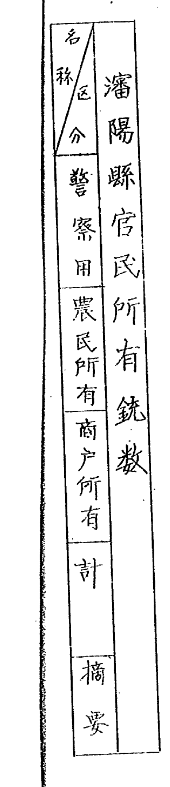 瀋陽縣官民所有銃数
名称
区分
警察用
農民所有
商户所有
計
摘要